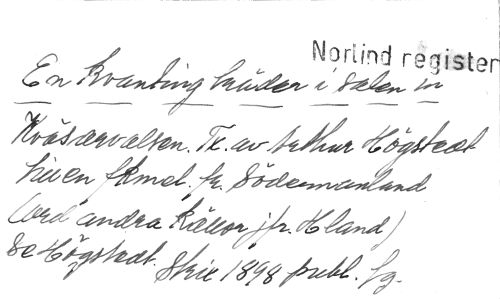 Norlind register
En kvanting bruden i salen in
Kväsarvalsen. Tr. av Arthur Högstedt
fr. Södermanland
andra källor jfr. H-land)
Se Högstedt. Skriv 1898 publ. fg.